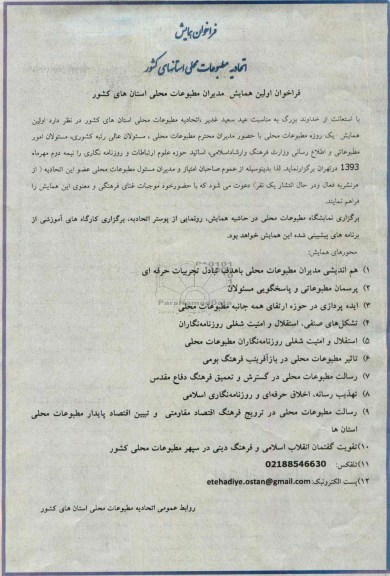 فراخوان همایش
اتحادیه مطبوعات محلی استانهای کشور
فراخوان اولین همایش مدیران مطبوعات محلی استان های کشور
با استعانت از خداوند بزرگ به مناسبت عید سعید غدیر ،اتحادیه مطبوعات محلی استان های کشور در نظر دارد اولین
همایش یک روزه مطبوعات محلی با حضور مدیران محترم مطبوعات محلی ، مسئولان عالی رتبه کشوری، مسئولان امور
مطبوعاتی و اطلاع رسانی وزارت فرهنگ وارشاداسلامی، اساتید حوزه علوم ارتباطات و روزنامه نگاری را نیمه دوم مهرماه
1393 درتهران برگزارنماید. لذا بدینوسیله از عموم صاحبان امتیاز و مدیران مسئول مطبوعات محلی عضو این اتحادیه ( از
هرنشریه فعال ودر حال انتشار یک نفر) دعوت می شود که با حضورخود موجبات غنای فرهنگی و معنوی این همایش را
فراهم نمایند.
برگزاری نمایشگاه مطبوعات محلی در حاشیه همایش، رونمایی از پوستر اتحادیه، برگزاری کارگاه های آموزشی از
برنامه های پیشبینی شده این همایش خواهد بود.
محورهای همایش:
۱) هم اندیشی مدیران مطبوعات محلی باهدف تبادل تجربیات حرفه ای
۲) پرسمان مطبوعاتی و پاسخگویی مسئولان
۳) ایده پردازی در حوزه ارتقای همه جانبه مطبوعات محلی
۴) تشکل‌های صنفی، استقلال و امنیت شغلی روزنامه‌نگاران
۵) استقلال و امنیت شغلی روزنامه‌نگاران مطبوعات محلی
۶) تاثیر مطبوعات محلی در بازآفرینی فرهنگ بومی
۷) رسالت مطبوعات محلی در گسترش و تعمیق فرهنگ دفاع مقدس
۸) تهذیب رسانه، اخلاق حرفه‌ای و روزنامه‌نگاری اسلامی
۹) رسالت مطبوعات محلی در ترویج فرهنگ اقتصاد مقاومتی و تبیین اقتصاد پایدار مطبوعات محلی
استان ها
۱۰)تقویت گفتمان انقلاب اسلامی و فرهنگ دینی در سپهر مطبوعات محلی کشور
۱۱)تلفکس: 02188546630
۱۲)پست الکترونیک:etehadiye.ostan@gmail.com
روابط عمومی اتحادیه مطبوعات محلی استان های کشور